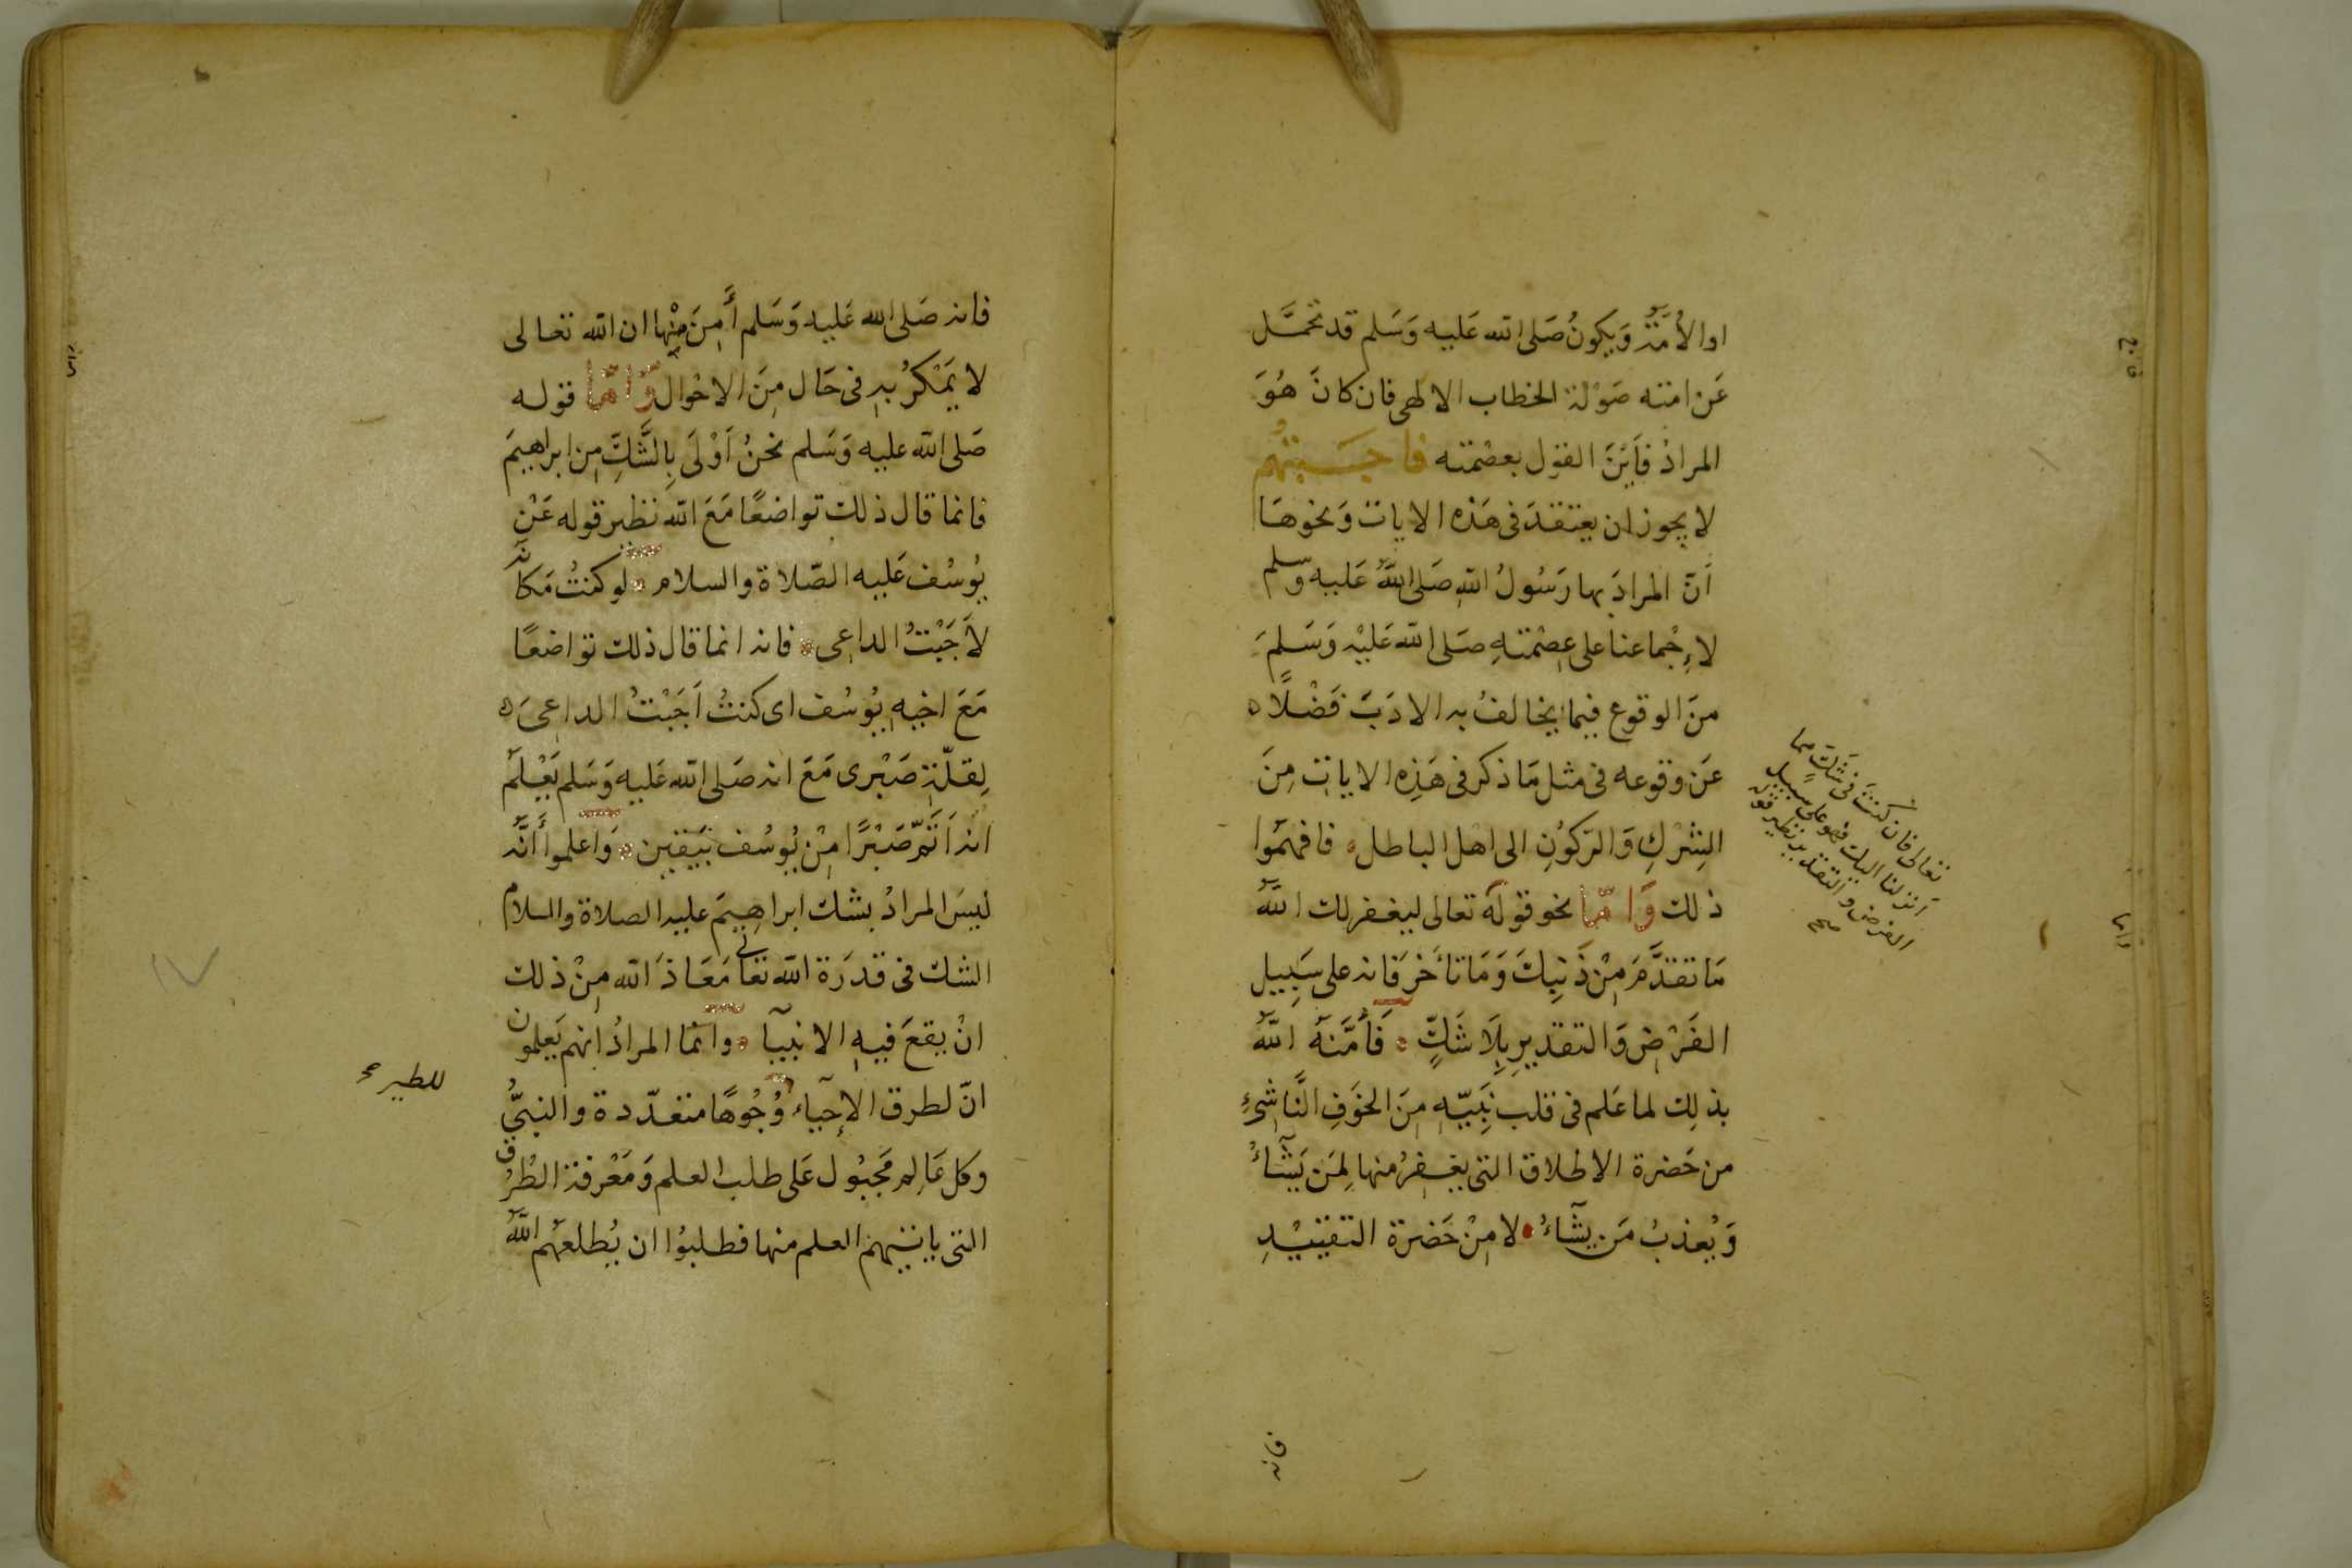 او الأمَّةُ وَيكونُ صَلى الله عَليه وَسَلم قد تحمَّل
عَن امته صَوْلة الخطاب الالهى فان كانَ هُوَ
المرادُ فَأَيْنَ القول بعصْمته فاجبتهم
لا يجوز ان يعتقدَ فى هَذه الايات وَنحوهَا
أنّ المرادَ بها رَسُولُ اللهِ صَلى اللهُ عَليه وسلم
لإِجْماعنا على عِصْمتهِ صلى الله عَليْه وَسَلمَ
منَ الوقوع فيما يخالفُ به الادَبَ فَضْلًا
عَن وقوعه فى مثل مَا ذكر فى هَذِه الايات مِنَ
الشِرْكِ وَالرّكوُنِ الى اهْل الباطل فافهمَوا
ذلك وَامّا نحو قوله تعالى ليغفر لك اللهُ
مَا تقدَّمَ مِنْ ذَنبِكَ وَمَا تأخرَ فانه على سَبِيل
الفَرْضِ وَالتقديرِ بِلَا شَكٍّ فَأمَّنَهُ اللهُ
بذلِك لما عَلم فى قلب نَبيّهِ مِنَ الخوَفِ النَّاشئِ
من حَضرة الاطلاق التى يغفِرُ منها لِمَن يَشَاءُ
وَيُعذبُ مَن يشَآءُ لا مِنْ حَضرة التقيْيْدِ
تعالى فان كنتَ فى شَكٍ مما
أنزلنا اليك فهو على سبيل
الفرض والتقدير نظير قوله
صح
فانه
فانه صَلى الله عَليه وَسَلم أَمِنَ مِنْها ان الله تعالى
لا يَمْكرُ بهِ فى حَال مِنَ الاحْوال وَامّا قوله
صَلى الله عليه وَسَلم نحنُ اَوْلَى بِالشَّكِّ مِن ابراهيمَ
فانما قال ذلك تواضعًا مَعَ الله نظير قوله عَنْ
يوُسُف عَليه الصّلاة والسلام لو كنتُ مَكانه
لأَجَبْتُ الداعِى فانه انما قال ذلك تواضعًا
مَعَ اخيهِ يوُسُف اى كنتُ اَجَبْتُ الداعِىَ
لِقلّةِ صَبْرى مَعَ انه صَلى الله عَليه وَسَلم يَعْلَم
انه أتمّ صَبْرًا مِنْ يوُسُف بيَقين وَاعلموا أنَّه
ليسَ المرادُ بشك ابراهِيمَ عليه الصلاة والسلام
الشك فى قدرَة الله تعالى مَعَاذَ الله مِنْ ذلك
انْ يقعَ فيهِ الانبيآ وانما المرادُ انهم يَعلمون
انّ لطرق الإحيآء وُجُوهًا متعدّدة والنبىُّ
وكل عَالِم مَجبُول عَلى طلب العلم وَمَعْرفة الطُرُق
التى ياتيهم العلم منها فطلبوُا ان يُطلعهُم اللهُ
للطير صح